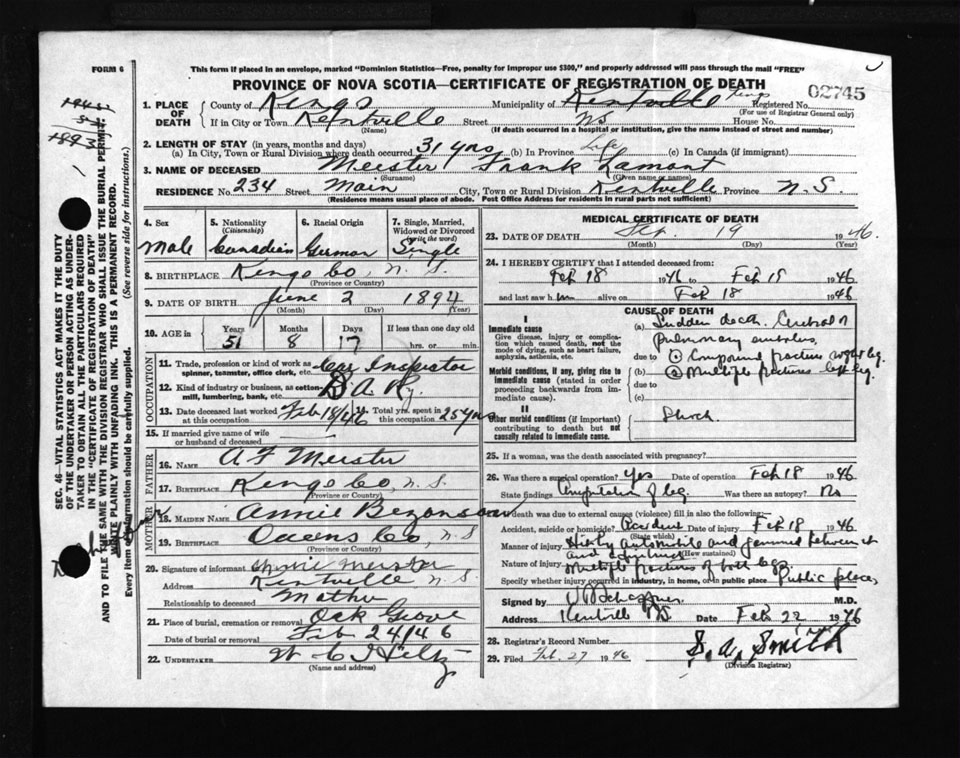 FORM 6
This form if placed in an envelope, marked "Dominion Statistics—Free, penalty for improper use $300," and properly addressed will pass through the mail "FREE"
PROVINCE OF NOVA SCOTIA—CERTIFICATE OF REGISTRATION OF DEATH
02745
1. PLACE OF DEATH County of Kings Municipality of Kentville Kings Registered No.
(For use of Registrar General only)
If in City or Town Kentville Street NS House No.
(Name) (If death occurred in a hospital or institution, give the name instead of street and number)
2. LENGTH OF STAY (in years, months and days)
(a) In City, Town or Rural Division where death occurred 31 yrs (b) In Province Life (c) In Canada (if immigrant)
3. NAME OF DECEASED Meister Frank Lamont
(Surname) (Given name or names)
RESIDENCE No. 234 Street Main City, Town or Rural Division Kentville Province N.S.
(Residence means usual place of abode. Post Office Address for residents in rural parts not sufficient)
4. Sex Male
5. Nationality (Citizenship) Canadian
6. Racial Origin German
7. Single, Married, Widowed or Divorced (write the word) Single
8. BIRTHPLACE Kings Co, N.S.
(Province or Country)
9. DATE OF BIRTH June 2 1894
(Month) (Day) (Year)
10. AGE in Years 51 Months 8 Days 17 If less than one day old hrs. or min.
OCCUPATION
11. Trade, profession or kind of work as spinner, teamster, office clerk, etc. Car Inspector
12. Kind of industry or business, as cotton-mill, lumbering, bank, etc. D. A. Ry.
13. Date deceased last worked at this occupation Feb 18/46 14. Total yrs. spent in this occupation 25 yrs
15. If married give name of wife or husband of deceased
FATHER
16. NAME A F Meister
17. BIRTHPLACE Kings Co, N.S.
(Province or Country)
MOTHER
18. MAIDEN NAME Annie Bezanson
19. BIRTHPLACE Queens Co, N.S
(Province or Country)
20. Signature of informant Annie Meister
Address Kentville N.S.
Relationship to deceased Mother
21. Place of burial, cremation or removal Oak Grove
Date of burial or removal Feb 24/46
22. UNDERTAKER W C Hiltz
(Name and address)
MEDICAL CERTIFICATE OF DEATH
23. DATE OF DEATH Feb. 19 1946.
(Month) (Day) (Year)
24. I HEREBY CERTIFY that I attended deceased from:
Feb 18 1946 to Feb 18 1946
and last saw him alive on Feb 18 1946
CAUSE OF DEATH
I
Immediate cause
Give disease, injury or complication which caused death, not the mode of dying, such as heart failure, asphyxia, asthenia, etc.
(a) Sudden death. Cerebral or
pulmonary embolus.
due to ① Compound fracture leg.
Morbid conditions, if any, giving rise to immediate cause (stated in order proceeding backwards from immediate cause).
(b) ② Multiple fractures left leg.
due to
(c)
II
Other morbid conditions (if important) contributing to death but not causally related to immediate cause.
Shock
25. If a woman, was the death associated with pregnancy?
26. Was there a surgical operation? Yes Date of operation Feb 18 1946
State findings Amputation of leg. Was there an autopsy? No
27. If death was due to external causes (violence) fill in also the following:
Accident, suicide or homicide? Accident Date of injury Feb 18 1946
(State which)
Manner of injury Hit by automobile and jammed between it
(How sustained)
and
Nature of injury Multiple fractures of both legs.
Specify whether injury occurred in industry, in home, or in public place Public place,
Signed by M.D.
Address Kentville NS Date Feb 22 1946
28. Registrar's Record Number
29. Filed Feb. 27 1946 S. A. Smith
(Division Registrar)
SEC. 46—VITAL STATISTICS ACT MAKES IT THE DUTY
OF THE UNDERTAKER OR PERSON ACTING AS UNDER-
TAKER TO OBTAIN ALL THE PARTICULARS REQUIRED
IN THE "CERTIFICATE OF REGISTRATION OF DEATH"
AND TO FILE THE SAME WITH THE DIVISION REGISTRAR WHO SHALL ISSUE THE BURIAL PERMIT.
WRITE PLAINLY WITH UNFADING INK. THIS IS A PERMANENT RECORD.
Every item of information should be carefully supplied. (See reverse side for instructions.)